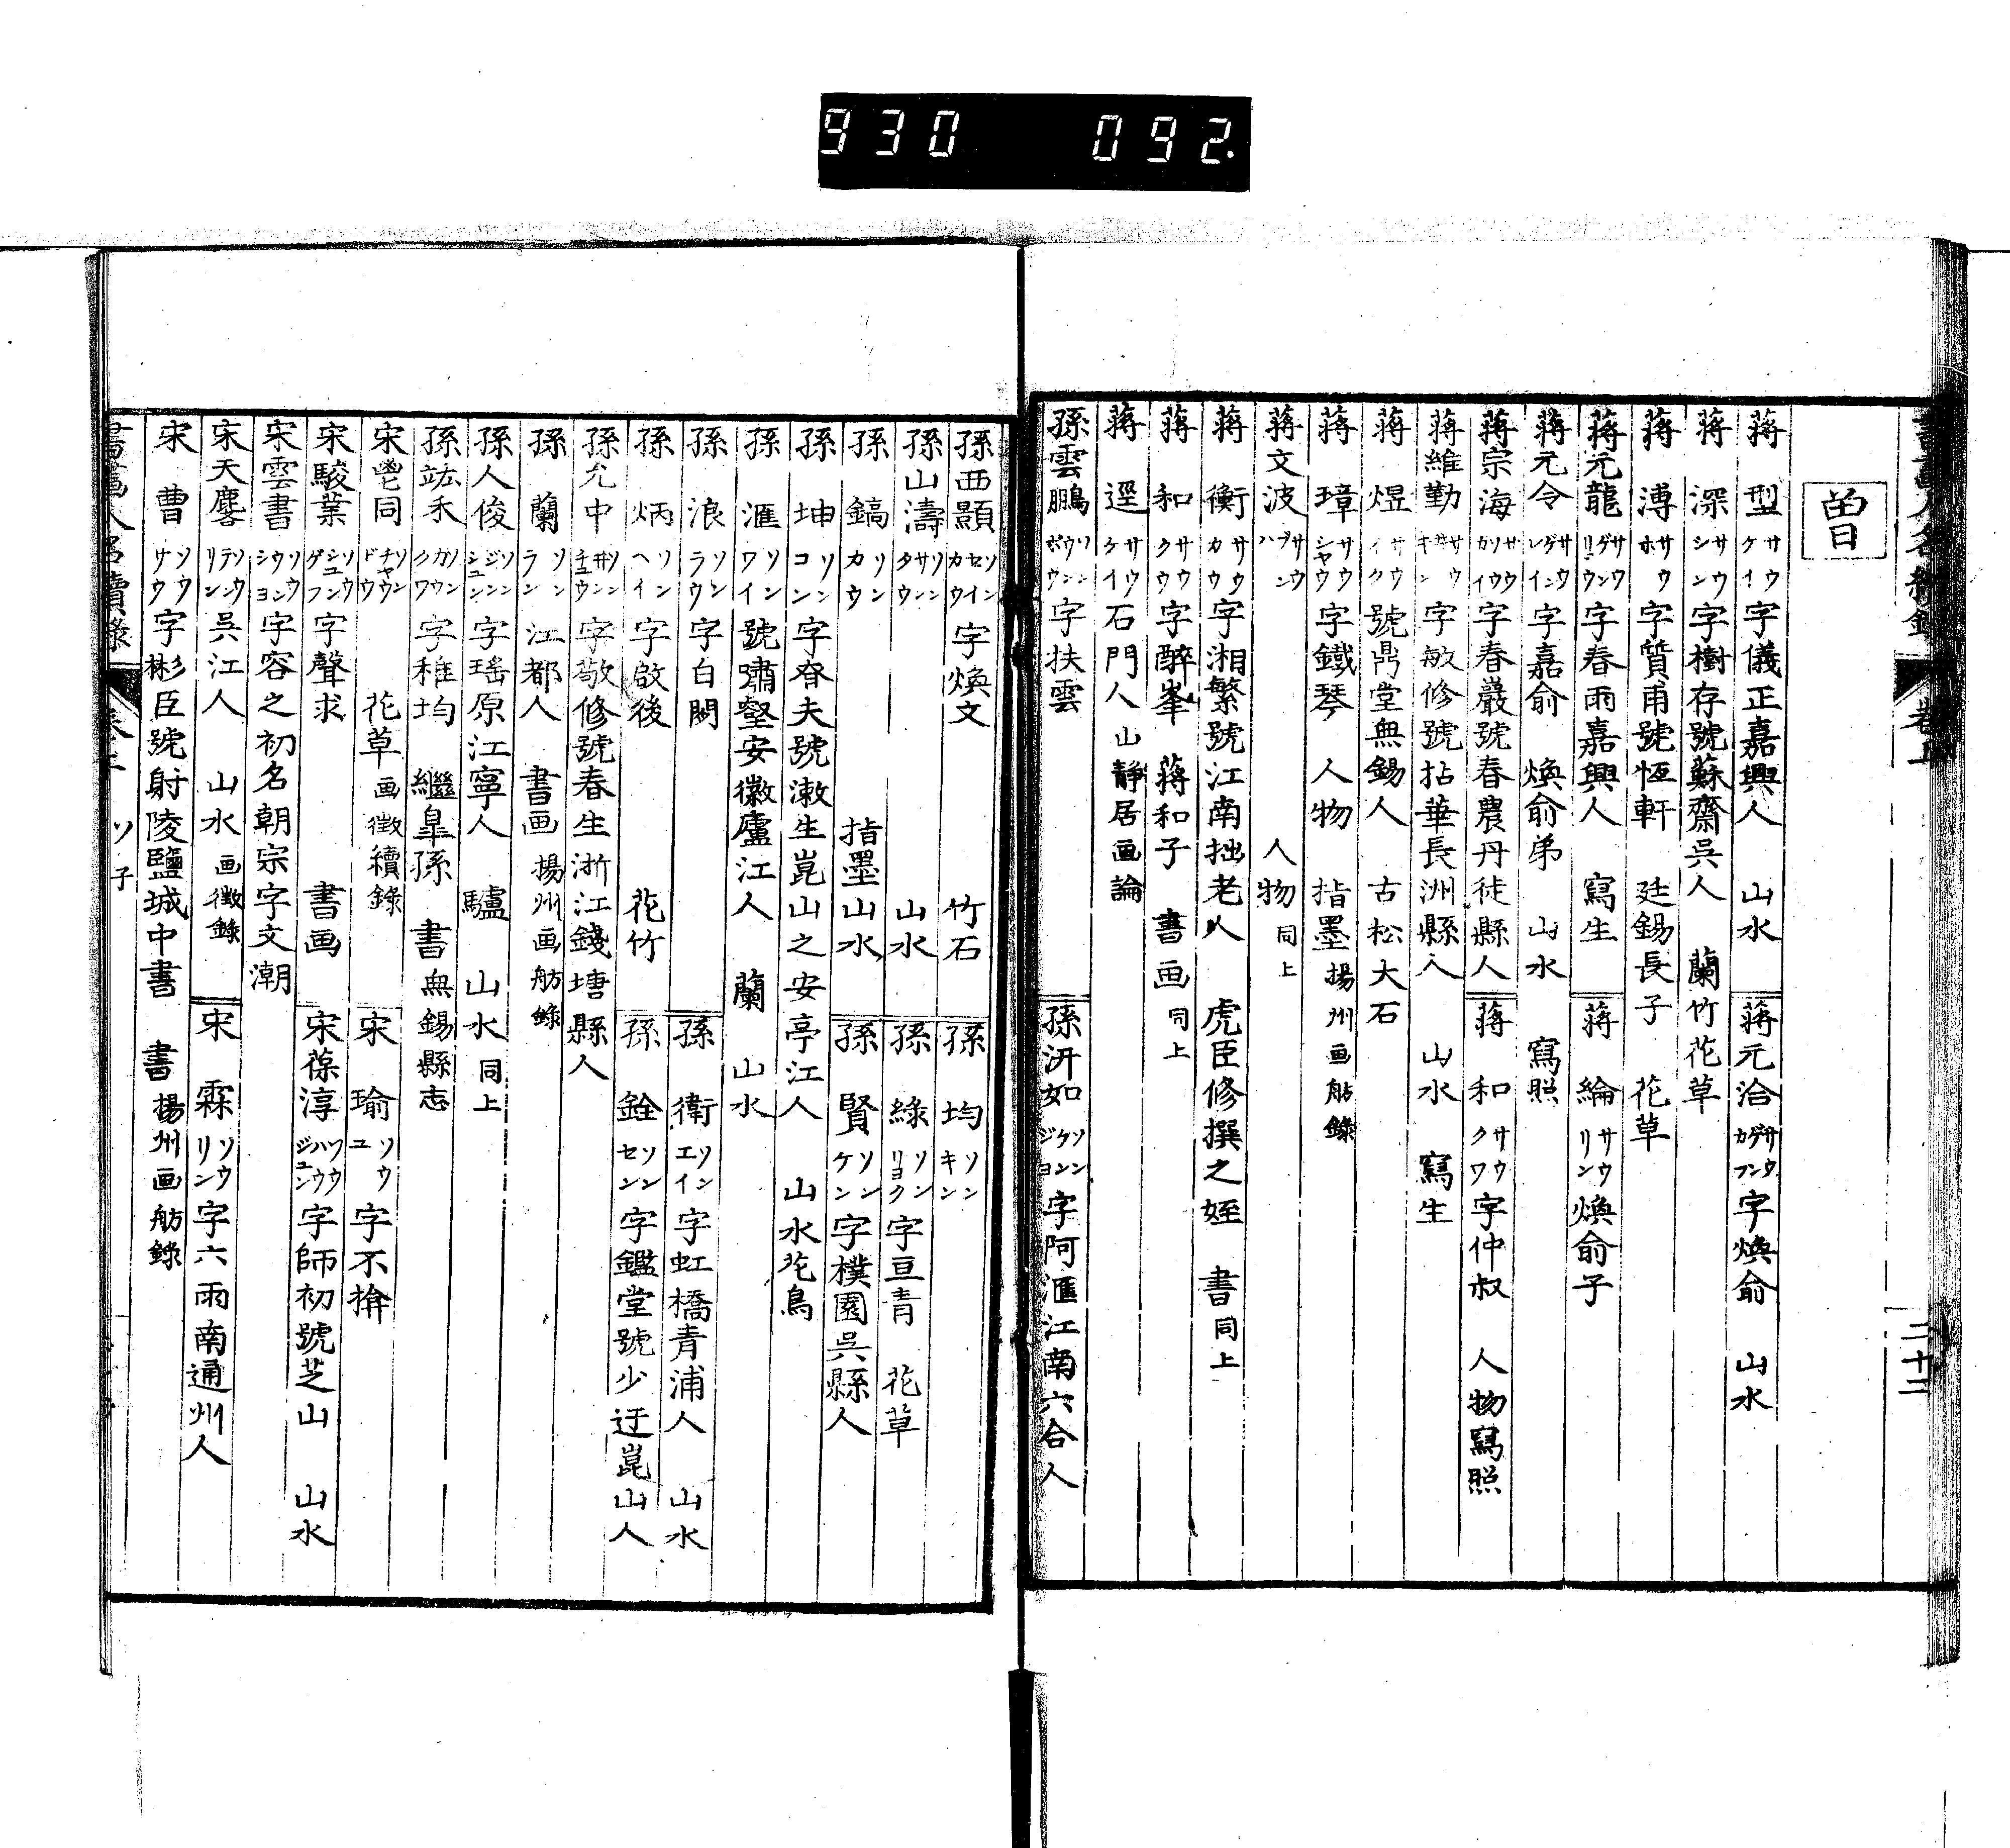 930 092.
曽
蒋型 サウケイ 字儀正嘉興人 山水
蒋元洽 サウゲンカフ 字煥俞 山水
蒋深 サウシン 字樹存號蘇齋吳人 蘭竹花草
蒋溥 サウホ 字質甫號恆軒 廷錫長子 花草
蒋元龍 サウゲンリユウ 字春雨嘉興人 寫生
蒋綸 サウリン 煥俞子
蒋元令 サウゲンレイ 字嘉俞 煥俞弟 山水 寫照
蒋宗海 サウソウカイ 字春巖號春農丹徒縣人
蒋和 サウクワ 字仲叔 人物寫照
蒋維勤 字敏修號拈華長洲縣人 山水 寫生
蒋煜 サウイク 號鼎堂無錫人 古松大石
蒋璋 サウシヤウ 字鐵琴 人物 指墨 揚州画舫錄
蒋文波 人物 同上
蒋衡 サウカウ 字湘繁號江南拙老人 虎臣修撰之姪 書 同上
蒋和 字醉峯 蒋和子 書画 同上
蒋逕 サウケイ 石門人 山靜居画論
孫雲鵬 ソンウンボウ 字扶雲
孫汧如 ソンケンジヨ 字阿滙江南六合人
孫西顥 ソンセイカウ 字煥文 竹石
孫均 ソンキン
孫山濤 ソンサンタウ 山水
孫綠 ソンリヨク 字亘青 花草
孫鎬 ソンカウ 指墨山水
孫賢 ソンケン 字樸園吳縣人
孫坤 ソンコン 字脊夫號漱生崑山之安亭江人 山水花鳥
孫滙 ソンワイ 號嘯壑安徽廬江人 蘭 山水
孫浪 ソンラウ 字白閼
孫衛 ソンエイ 字虹橋青浦人 山水
孫炳 ソンヘイ 字啟後 花竹
孫銓 ソンセン 字鑑堂號少迂崑山人
孫允中 字敬修號春生浙江錢塘縣人
孫蘭 ソンラン 江都人 書画 揚州画舫錄
孫人俊 ソンジンシユン 字瑤原江寧人 驢 山水 同上
孫竑禾 ソンカウクワ 字稚均 繼皐孫 書 無錫縣志
宋鬯同 ソウチヤウドウ 花草 画徵續錄
宋瑜 ソウユ 字不揜
宋駿業 ソウシユンゲフ 字聲求 書画
宋葆淳 ソウハウジユン 字師初號芝山 山水
宋雲書 ソウウンシヨ 字容之初名朝宗字文潮
宋天麐 ソウテンリン 吳江人 山水 画徵錄
宋霖 ソウリン 字六雨南通州人
宋曹 ソウサウ 字彬臣號射陵鹽城中書 書 揚州画舫錄
ソ 子
二十二